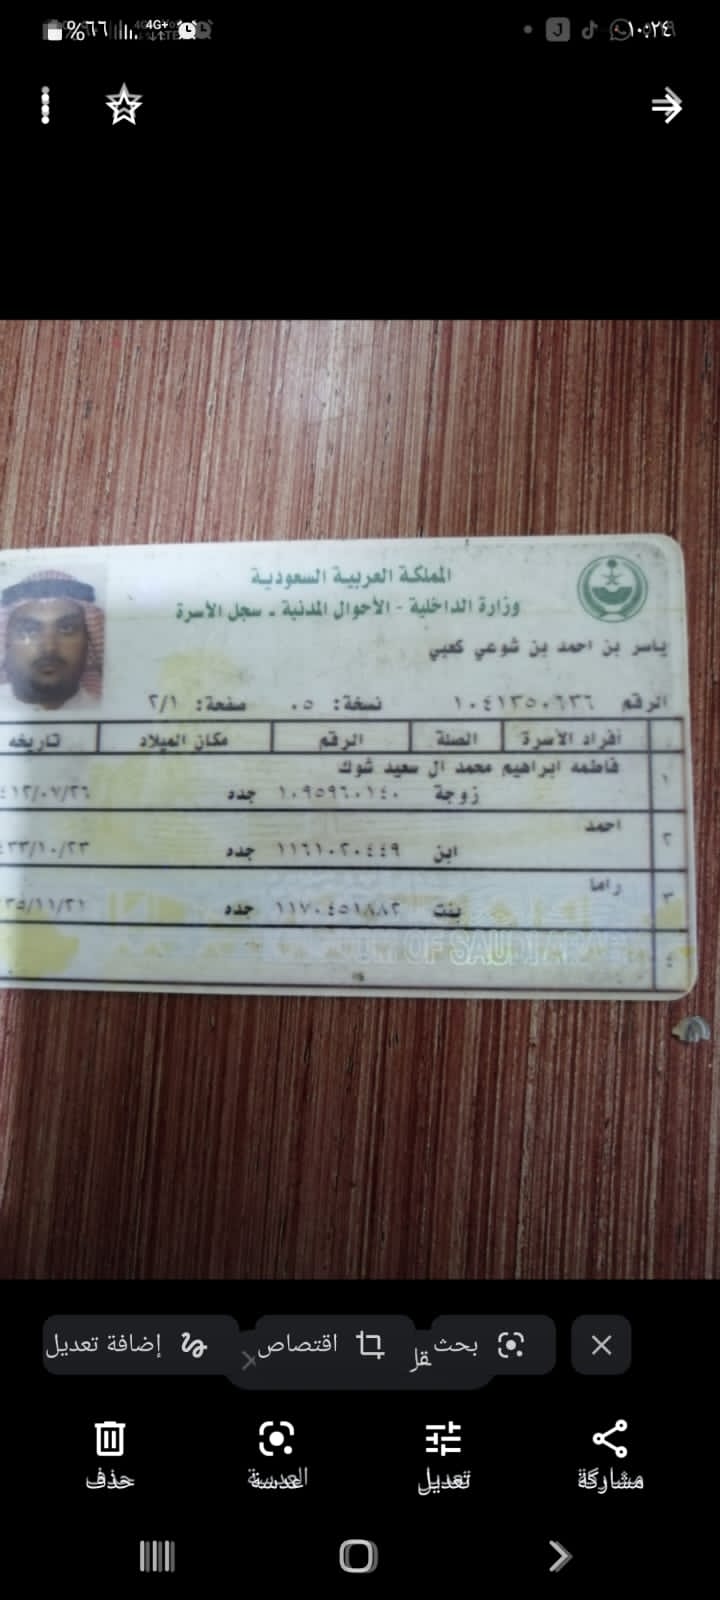 %٦٦
4G+
١٠:٢٤
المملكة العربية السعودية
وزارة الداخلية - الأحوال المدنية - سجل الأسرة
ياسر بن احمد بن شوعي كعبي
الرقم ١٠٤١٣٥٠٦٣٦ نسخة: ٠٥ صفحة: ٢/١
أفراد الأسرة الصلة الرقم مكان الميلاد تاريخه
١ فاطمه ابراهيم محمد ال سعيد شوك
زوجة ١٠٩٥٩٦٠١٤٠ جده ٤١٢/٠٧/٢٦
٢ احمد
ابن ١١٦١٠٢٠٤٤٩ جده ٤٣٣/١٠/٢٣
٣ راما
بنت ١١٧٠٤٥١٨٨٢ جده ٣٥/١١/٢١
٤
OF SAUDI ARAB
بحث
اقتصاص
إضافة تعديل
مشاركة
تعديل
العدسة
حذف